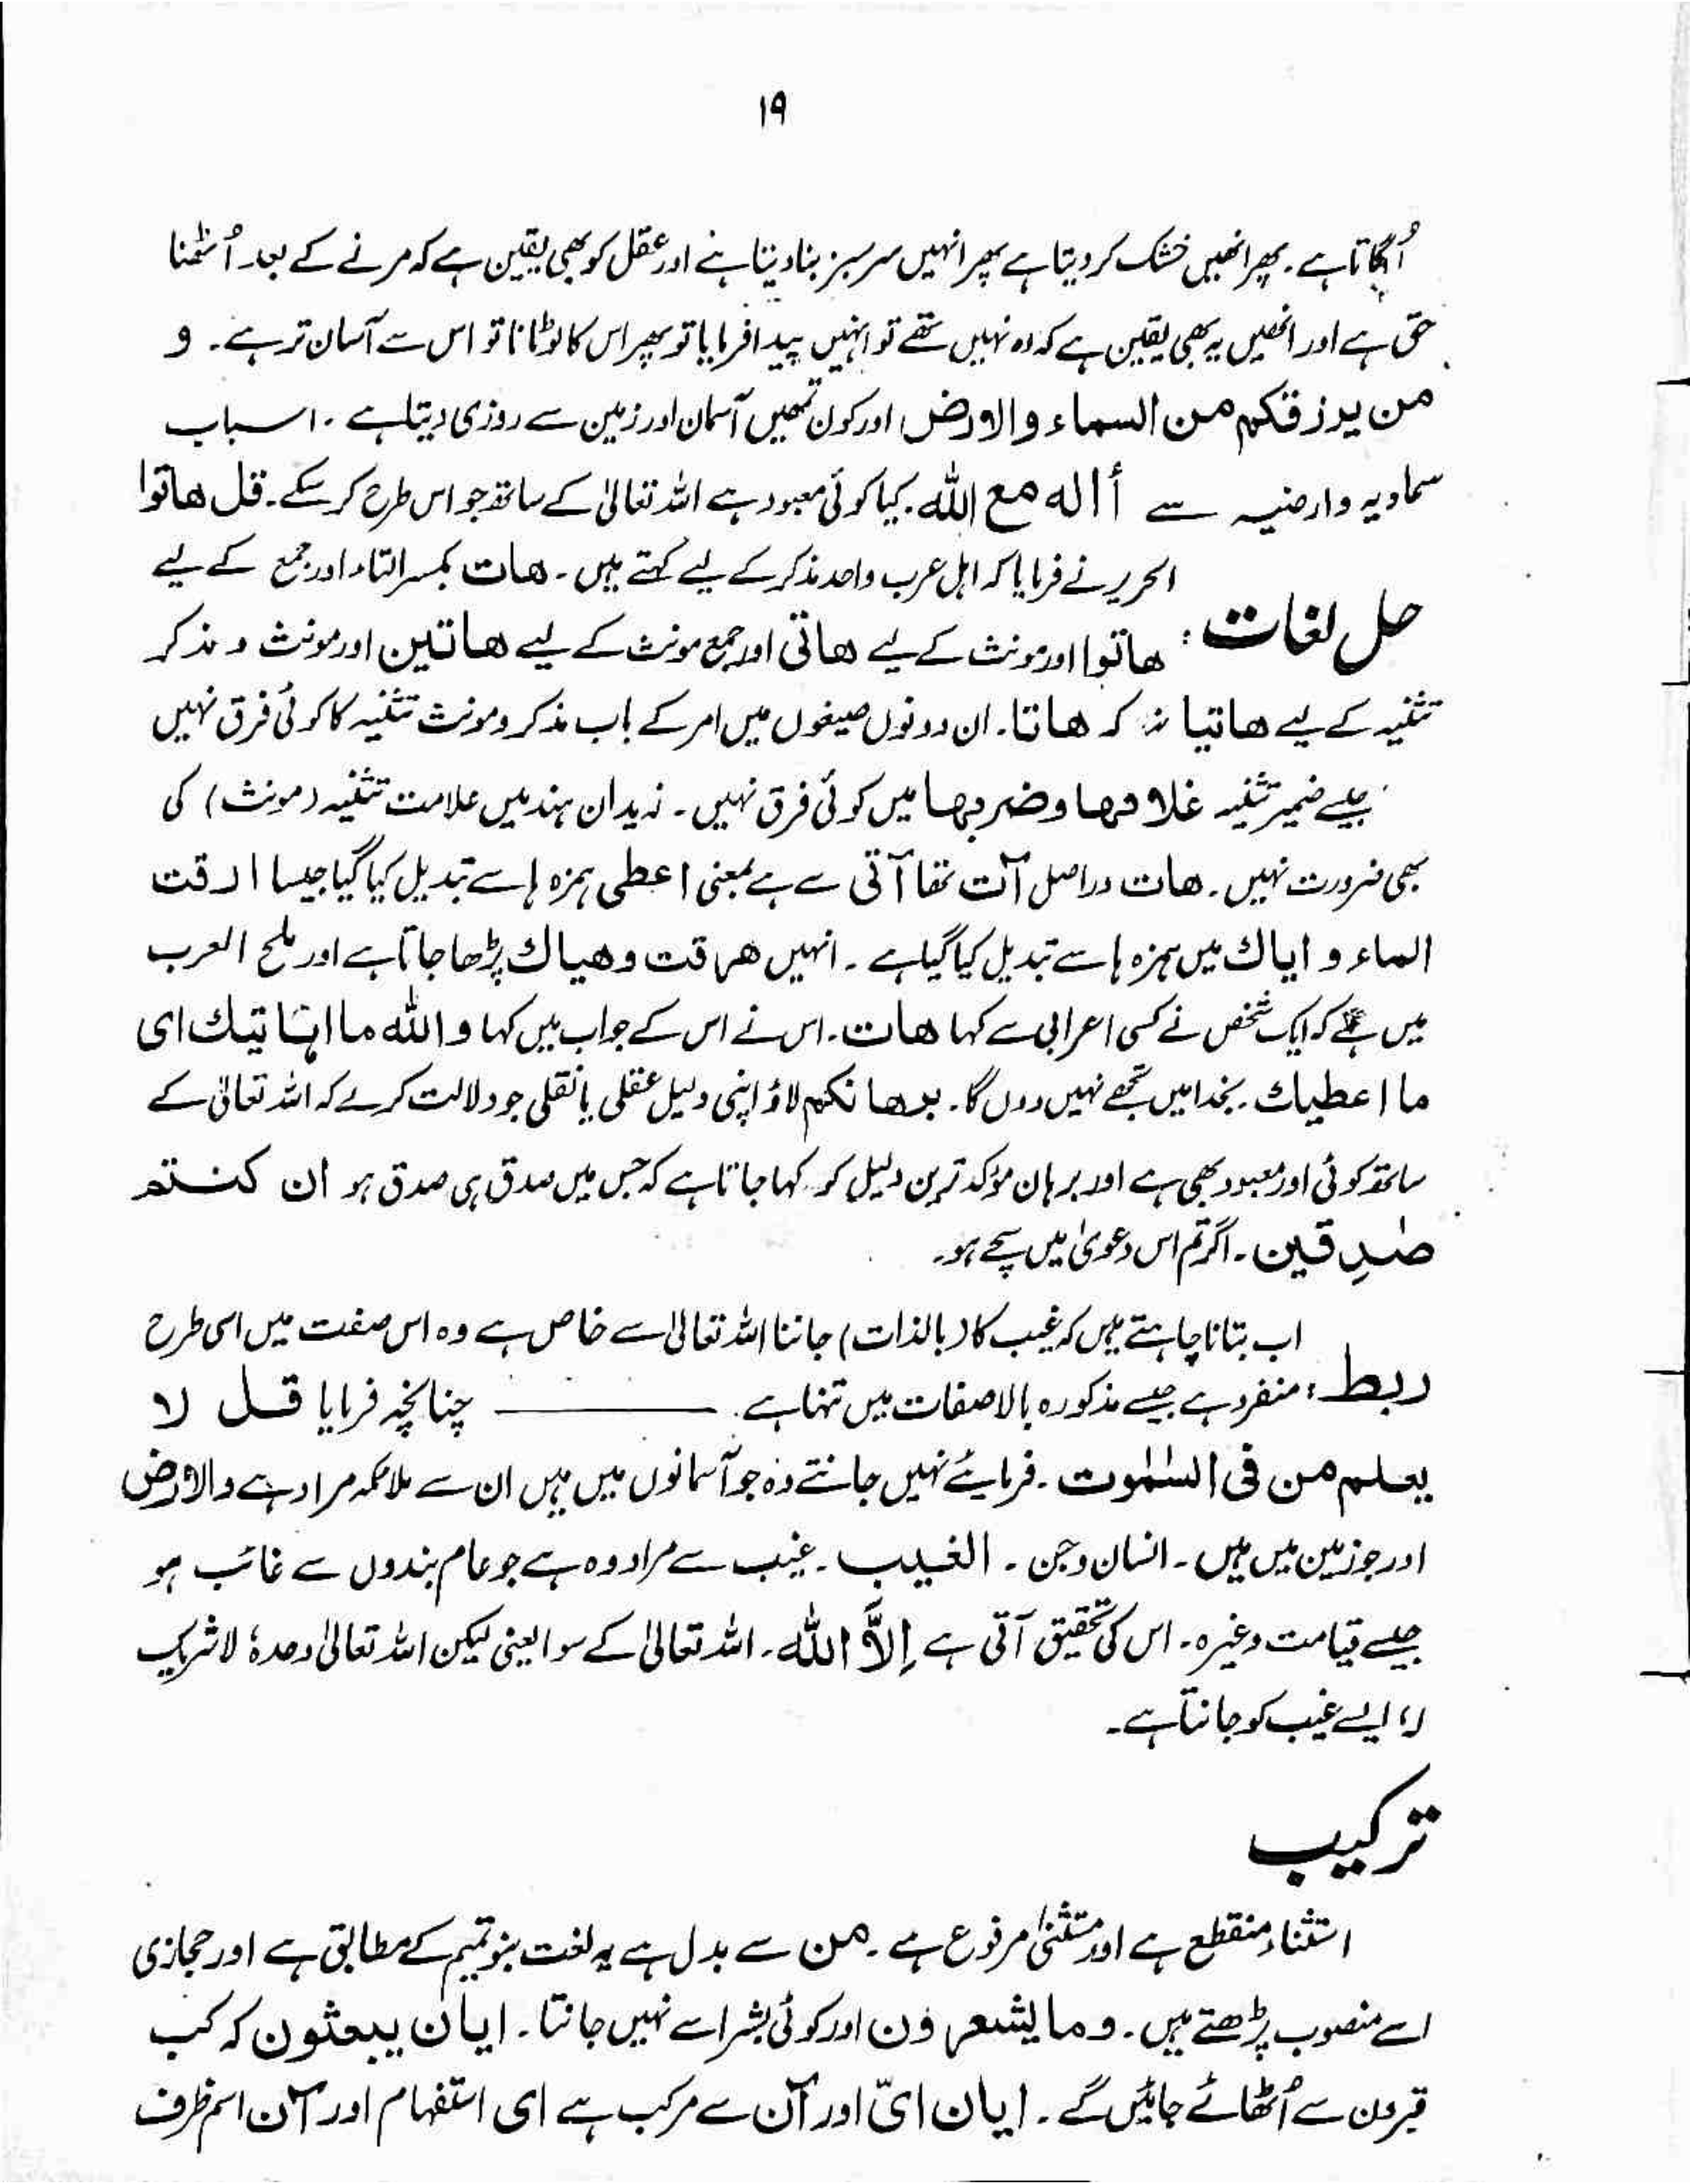 ۱۹
اُگاتا ہے۔ پھر انھیں خشک کر دیتا ہے پھر انہیں سرسبز بنا دیتا ہے اور عقل کو بھی یقین ہے کہ مرنے کے بعد اُٹھنا
حق ہے اور انھیں یہ بھی یقین ہے کہ وہ نہیں تھے تو انہیں پیدا فرمایا تو پھر اس کا لوٹانا تو اس سے آسان تر ہے۔ و
من یرزقکم من السماء والارض اور کون تمھیں آسمان اور زمین سے روزی دیتا ہے۔ اسباب
سماویہ وارضیہ سے أالٰه مع اللّٰه۔ کیا کوئی معبود ہے اللہ تعالیٰ کے ساتھ جو اس طرح کر سکے۔ قل هاتوا
الحریر نے فرمایا کہ اہل عرب واحد مذکر کے لیے کہتے ہیں۔ هات بکسر التاء اور جمع کے لیے
حل لغات : هاتوا اور مونث کے لیے هاتی اور جمع مونث کے لیے هاتین اور مونث و مذکر
تثنیہ کے لیے هاتیا نہ کہ هاتا۔ ان دونوں صیغوں میں امر کے باب مذکر و مونث تثنیہ کا کوئی فرق نہیں
جیسے ضمیر تثنیہ غلامهما وضربهما میں کوئی فرق نہیں۔ زیدان ہند میں علامت تثنیہ (مونث) کی
بھی ضرورت نہیں۔ هات دراصل آت تھا آتی سے ہے بمعنی اعطی ہمزہ ہا سے تبدیل کیا گیا جیسا ارقت
الماء و ایاك میں ہمزہ ہا سے تبدیل کیا گیا ہے۔ انہیں هرقت وهیاك پڑھا جاتا ہے اور ملح العرب
میں ہے کہ ایک شخص نے کسی اعرابی سے کہا هات۔ اس نے اس کے جواب میں کہا واللّٰه ما اهاتیك ای
ما اعطیاك۔ بخدا میں تجھے نہیں دوں گا۔ برهانکم لاؤ اپنی دلیل عقلی یا نقلی جو دلالت کرے کہ اللہ تعالیٰ کے
ساتھ کوئی اور معبود بھی ہے اور برہان مؤکد ترین دلیل کو کہا جاتا ہے کہ جس میں صدق ہی صدق ہو ان کنتم
صٰدقین۔ اگر تم اس دعویٰ میں سچے ہو۔
اب بتانا چاہتے ہیں کہ غیب کا (بالذات) جاننا اللہ تعالیٰ سے خاص ہے وہ اس صفت میں اسی طرح
ربط : منفرد ہے جیسے مذکورہ بالا صفات میں تنہا ہے۔ ——— چنانچہ فرمایا قل لا
یعلم من فی السمٰوت۔ فرمائیے نہیں جانتے وہ جو آسمانوں میں ہیں ان سے ملائکہ مراد ہے والارض
اور جو زمین میں ہیں۔ انسان و جن۔ الغیب۔ غیب سے مراد وہ ہے جو عام بندوں سے غائب ہو
جیسے قیامت وغیرہ۔ اس کی تحقیق آتی ہے إلاَّ اللّٰه۔ اللہ تعالیٰ کے سوا یعنی لیکن اللہ تعالیٰ وحدہٗ لا شریک
لہٗ ایسے غیب کو جانتا ہے۔
ترکیب
استثناء منقطع ہے اور مستثنیٰ مرفوع ہے۔ من سے بدل ہے یہ لغت بنو تمیم کے مطابق ہے اور حجازی
اسے منصوب پڑھتے ہیں۔ وما یشعرون اور کوئی بشر اسے نہیں جانتا۔ ایان یبعثون کہ کب
قبروں سے اُٹھائے جائیں گے۔ ایان ایّ اور آن سے مرکب ہے ای استفہام اور آن اسم ظرف